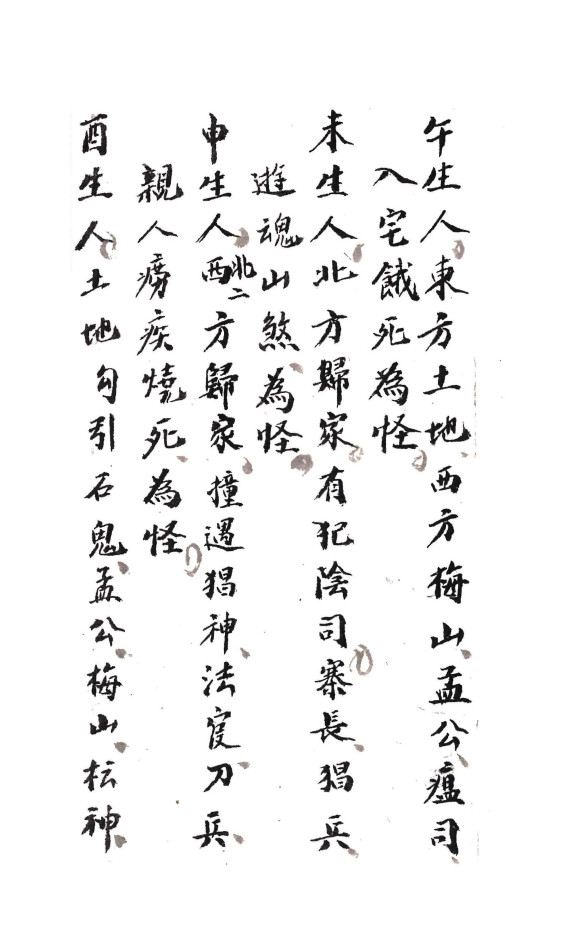 午生人東方土地西方梅山孟公瘟司
入宅餓死為怪
未生人北方歸家有犯陰司寨長猖兵
遊魂山煞為怪
申生人西北二方歸家撞遇猖神法度刀兵
親人癆疾燒死為怪
酉生人土地勾引石鬼孟公梅山枟神